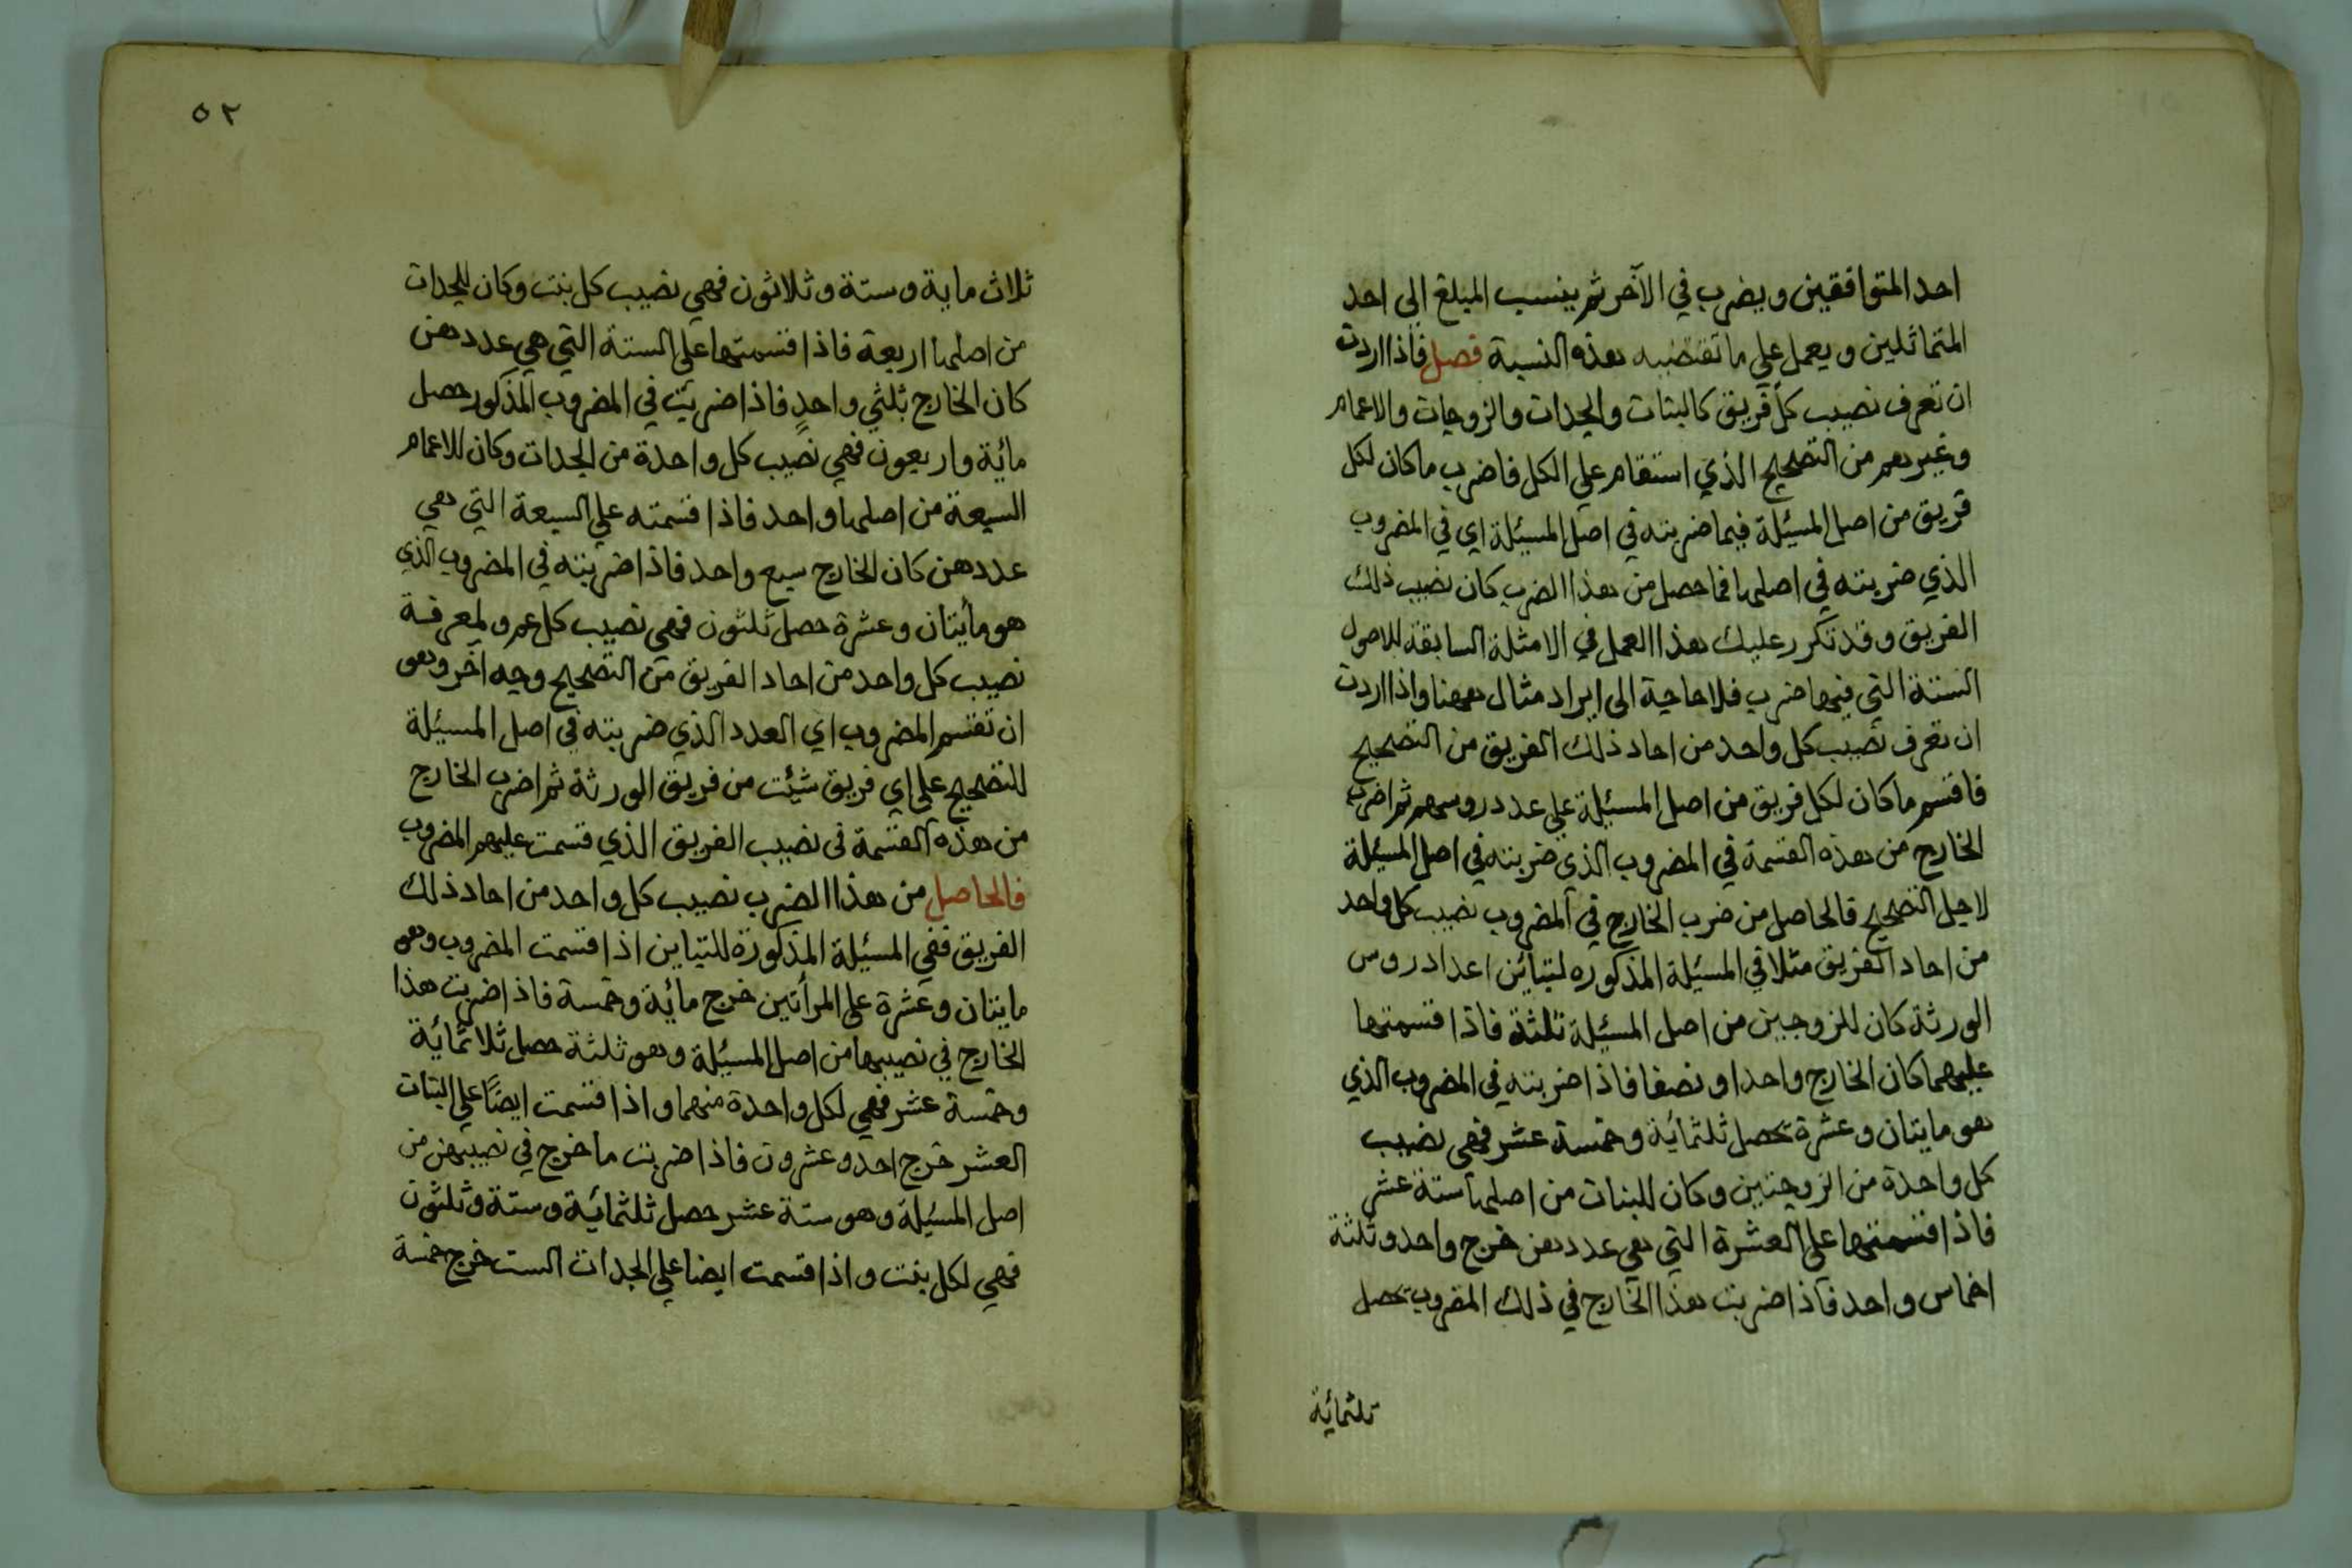 احد المتوافقين ويضرب في الآخر ثم ينسب المبلغ الى احد
المتماثلين ويعمل على ما تقتضيه هذه النسبة فصل فاذا اردت
ان تعرف نصيب كل فريق كالبنات والجدات والزوجات والاعمام
وغيرهم من التصحيح الذي استقام علي الكل فاضرب ما كان لكل
فريق من اصل المسئلة فيما ضربته في اصل المسئلة اي في المضروب
الذي ضربته في اصلها فما حصل من هذا الضرب كان نصيب ذلك
الفريق وقد تكرر عليك هذا العمل في الامثلة السابقة للاصول
الستة التي فيها ضرب فلا حاجة الى ايراد مثال ههنا واذا اردت
ان تعرف نصيب كل واحد من احاد ذلك الفريق من التصحيح
فاقسم ما كان لكل فريق من اصل المسئلة على عدد روسهم ثم اضرب
الخارج من هذه القسمة في المضروب الذي ضربته في اصل المسئلة
لاجل التصحيح فالحاصل من ضرب الخارج في المضروب نصيب كل واحد
من احاد الفريق مثلا في المسئلة المذكوره لتباين اعداد روس
الورثة كان للزوجين من اصل المسئلة ثلثة فاذا قسمتها
عليهما كان الخارج واحدا ونصفا فاذا ضربته في المضروب الذي
هو مايتان وعشرة تحصل ثلثمائة وخمسة عشر فهي نصيب
كل واحدة من الزوجتين وكان للبنات من اصلها ستة عشر
فاذا قسمتها على العشرة التي هي عددهن خرج واحد وثلثة
اخماس واحد فاذا ضربت هذا الخارج في ذلك المضروب تحصل
ثلثمائة
٥٢
ثلاث ماية وستة وثلاثون فهي نصيب كل بنت وكان للجدات
من اصلها اربعة فاذا قسمتها على الستة التي هي عددهن
كان الخارج ثلثي واحد فاذا ضربت في المضروب المذكور حصل
مائة واربعون فهي نصيب كل واحدة من الجدات وكان للاعمام
السبعة من اصلها واحد فاذا قسمته علي السبعة التي هي
عددهن كان الخارج سبع واحد فاذا ضربته في المضروب الذي
هو مأيتان وعشرة حصل ثلثون فهي نصيب كل عم ولمعرفة
نصيب كل واحد من احاد الفريق من التصحيح وجه آخر وهو
ان تقسم المضروب اي العدد الذي ضربته في اصل المسئلة
للتصحيح على اي فريق شئت من فريق الورثة ثم اضرب الخارج
من هذه القسمة في نصيب الفريق الذي قسمت عليهم المضروب
فالحاصل من هذا الضرب نصيب كل واحد من احاد ذلك
الفريق ففي المسئلة المذكورة للتباين اذا قسمت المضروب وهو
مايتان وعشرة على المرأتين خرج مائة وخمسة فاذا ضربت هذا
الخارج في نصيبها من اصل المسئلة وهو ثلثة حصل ثلاثمائة
وخمسة عشر فهي لكل واحدة منهما واذا قسمت ايضًا على البنات
العشر خرج احد وعشرون فاذا ضربت ما خرج في نصيبهن من
اصل المسئلة وهو ستة عشر حصل ثلثمائة وستة وثلثون
فهي لكل بنت واذا قسمت ايضا على الجدات الست خرج خمسة